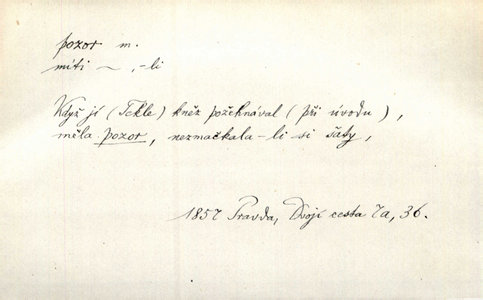 pozor m.
míti ~, -li
Když jí (Tekle) kněz požehnával (při úvodu),
měla pozor, neznačkala-li si šaty,
1857 Pravda, Dvojí cesta 7a, 36.